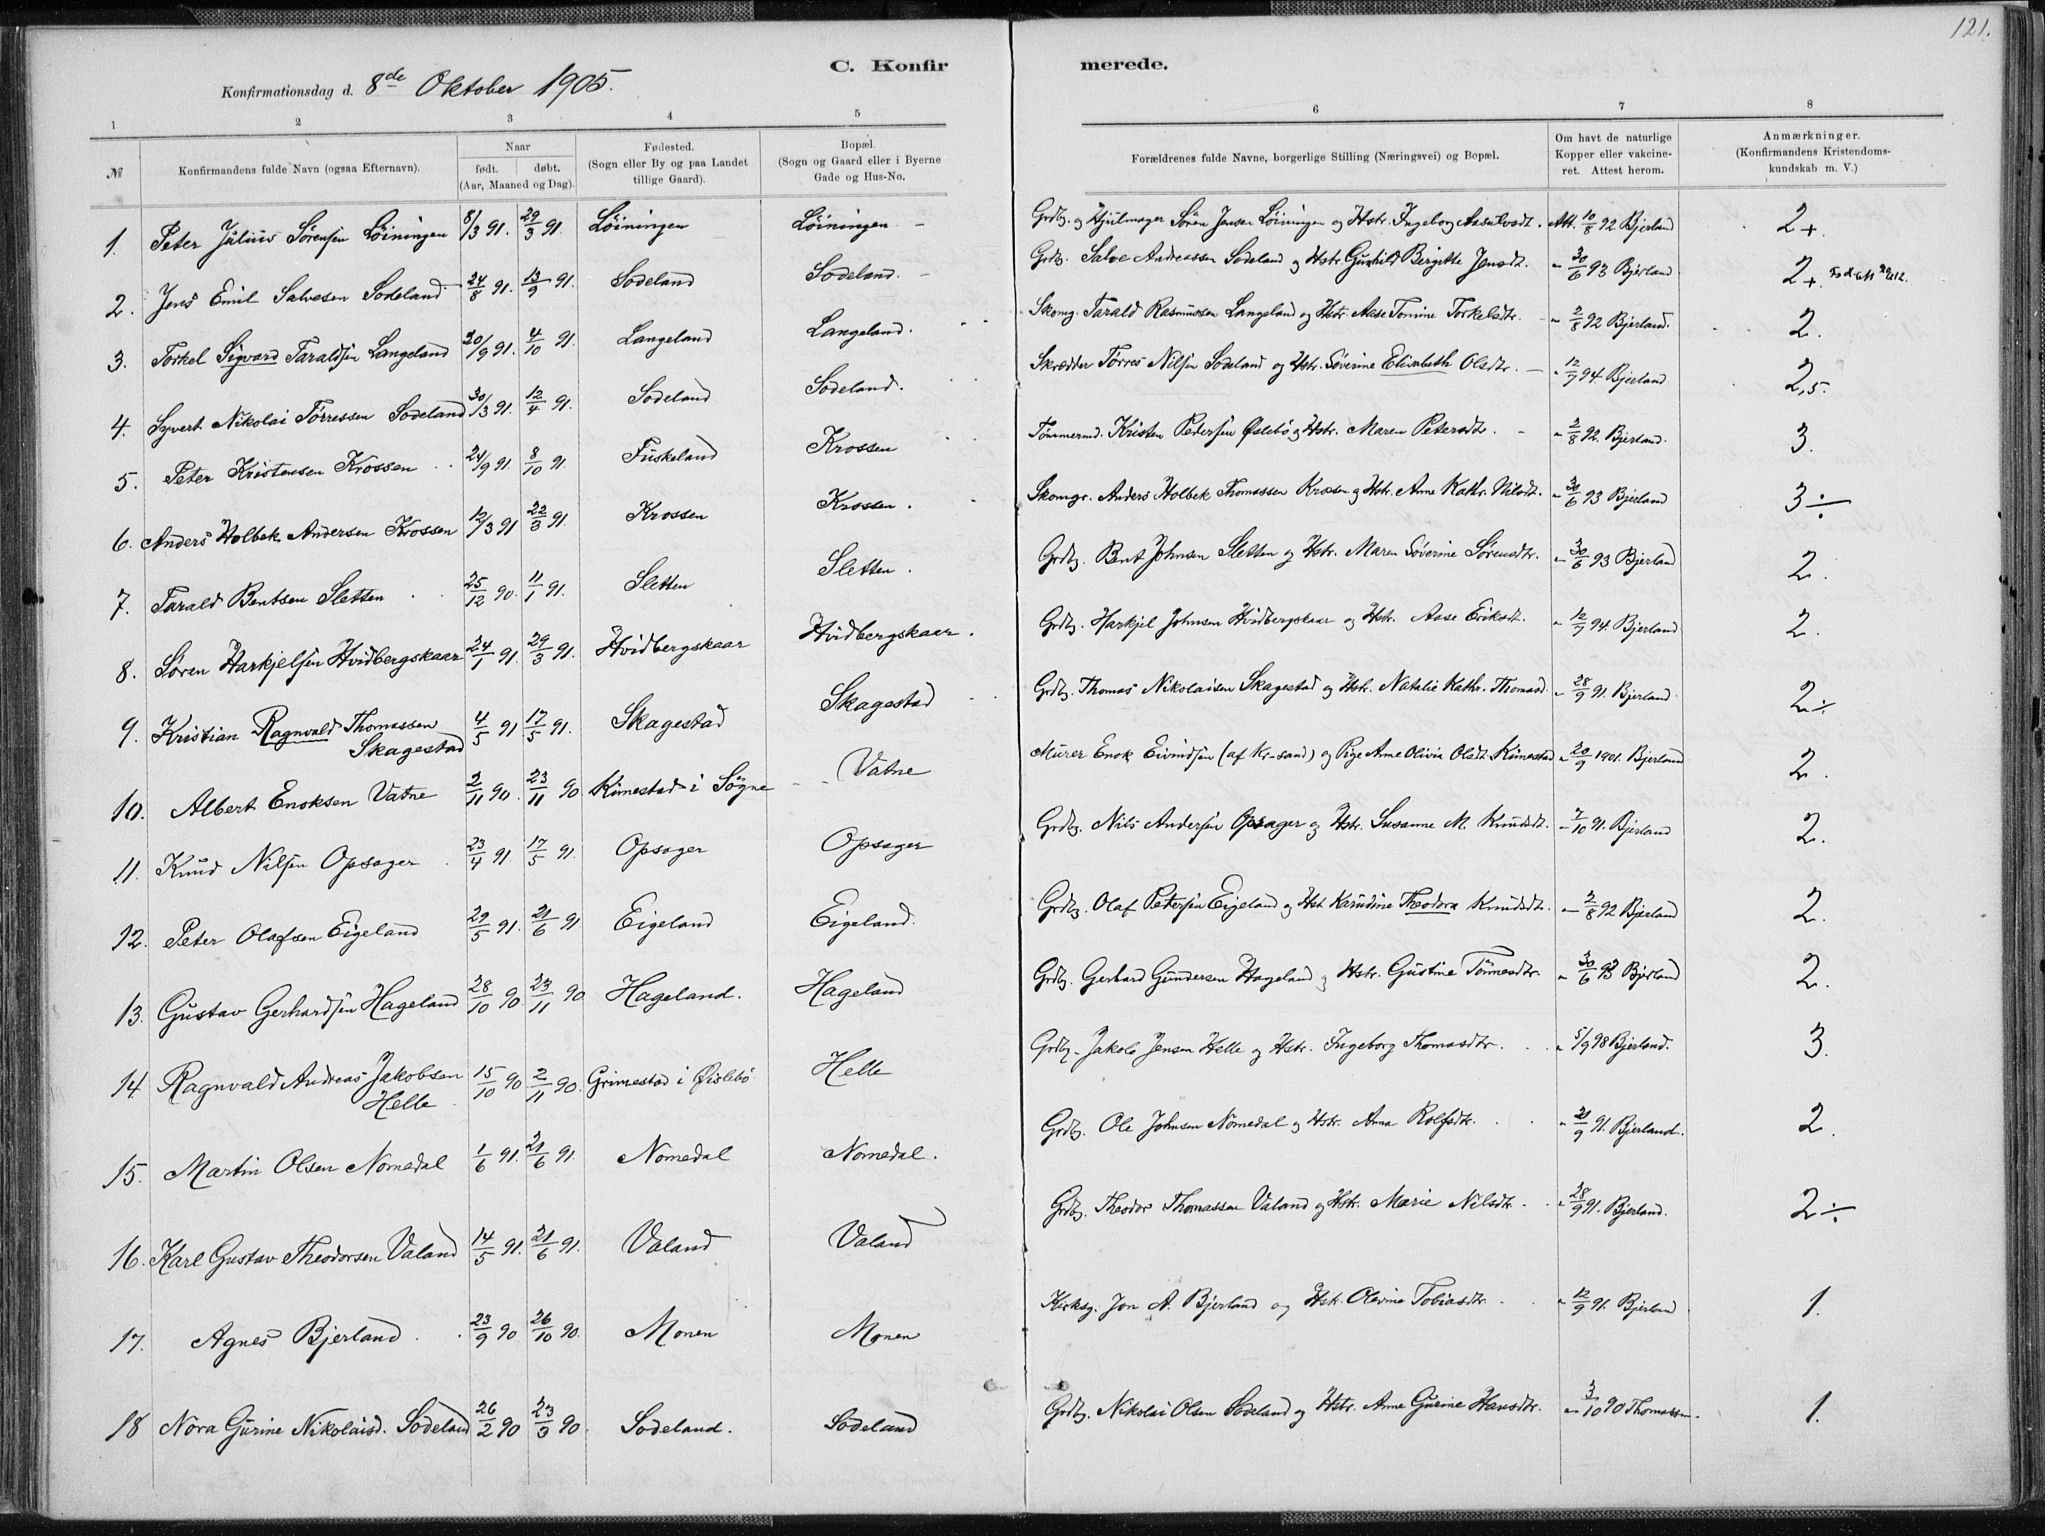 121.
C. Konfirmerede.
Konfirmationsdag d. 8de Oktober 1905.
1 2 3 4 5 6 7 8
№ | Konfirmandens fulde Navn (ogsaa Efternavn). | Naar født. døbt. (Aar, Maaned og Dag). | Fødested. (Sogn eller By og paa Landet tillige Gaard). | Bopæl. (Sogn og Gaard eller i Byerne Gade og Hus-No. | Forældrenes fulde Navne, borgerlige Stilling (Næringsvei) og Bopæl. | Om havt de naturlige Kopper eller vakcineret. Attest herom. | Anmærkninger. (Konfirmandens Kristendomskundskab m. V.)
1. Peter Julius Sørensen Løiningen 8/3 91. 29/3 91. Løiningen Løiningen - Grdbg. og Hjulmager Sören Jensen Löiningen og Hstr. Ingeborg Aasulvsdt. Att. 10/8 92 Bjerland 2+.
2. Jens Emil Salvesen Sodeland 24/8 91. 13/9 91. Sodeland Sodeland. - Grdbg. Salve Andreassen Sodeland og Hstr. Gunhild Bergitte Jensdt. " 30/6 93 Bjerland 2+.
3. Torkel Sigvard Taraldsen Langeland 20/9 91. 4/10 91. Langeland Langeland. Skomg. Tarald Rasmussen Langeland og Hstr. Aase Tomine Torkelsdtr. " 2/8 92 Bjerland. 2.
4. Syvert Nikolai Tørressen Sodeland 30/3 91. 12/4 91. Sodeland Sodeland. Skrædder Tørres Nilsen Sodeland og Hstr. Søverine Elisabeth Olsdtr. - " 12/9 94. Bjerland 2,5.
5. Peter Kristensen Krossen 24/9 91. 8/10 91. Fuskeland Krossen Tömmermd. Kristen Pedersen Øslebö og Hstr. Maren Petersdtr. - " 2/8 92. Bjerland. 3.
6. Anders Holbek Andersen Krossen 12/3 91 22/3 91. Krossen Krossen. Skomgr. Anders Holbek Thomassen Krossen og Hstr. Anne Kathr. Nilsdt. " 30/6 93 Bjerland 3÷
7. Tarald Bentsen Sletten 25/12 90. 11/1 91. Sletten Sletten. Grdbg. Bent Johnsen Sletten og Hstr. Maren Söverine Sörensdtr. " 30/6 93 Bjerland 2.
8. Søren Harkjelsen Hvidbergskaar 24/1 91. 29/3 91. Hvidbergskaar Hvidbergskaar. Grdbg. Harkjel Johnsen Hvidbergskaar og Hstr. Aase Eriksdt. " 12/9 94. Bjerland 2.
9. Kristian Ragnvald Thomassen Skagestad 4/5 91 17/5 91. Skagestad Skagestad Grdbg. Thomas Nikolaisen Skagestad og Hstr. Natalie Kathr. Thomasd. " 28/9 91. Bjerland 2÷
10. Albert Enoksen Vatne 2/11 90. 23/11 90 Kimestad i Søgne Vatne Murer Enok Eivindsen (af Kr-sand) og Pige Anne Olivie Olsdt. Kimestad " 20/9 1901. Bjerland 2.
11. Knud Nilsen Opsager 23/4 91 17/5 91. Opsager Opsager Grdbg. Nils Andersen Opsager og Hstr. Susanne M. Knudsdt. " 7/10 91. Bjerland 2.
12. Peter Olafsen Eigeland 29/5 91. 21/6 91 Eigeland Eigeland. Grdbg. Olaf Petersen Eigeland og Hst. Karudine Theodora Knudsdt. " 2/8 92 Bjerland 2.
13. Gustav Gerhardsen Hageland 28/10 90 23/11 90 Hageland. Hageland Grdbg. Gerhard Gundersen Hageland og Hstr. Gustine Tönnesdtr. " 30/6 93 Bjerland 2.
14. Ragnvald Andreas Jakobsen Helle 15/10 90 2/11 90. Grimestad i Øislebö Helle Grdbg. Jakob Jensen Helle og Hstr. Ingeborg Thomasdtr. " 5/9 98 Bjerland. 3.
15. Martin Olsen Nomedal 1/6 91. 21/6 91. Nomedal Nomedal. Grdbg. Ole Johnsen Nomedal og Hstr. Anna Rolfsdtr. " 21/9 91. Bjerland. 2.
16. Karl Gustav Theodorsen Valand 14/5 91. 21/6 91. Valand Valand Grdbg. Theodor Thomassen Valand og Hstr. Marie Nilsdtr. " 28/9 91. Bjerland. 2÷
17. Agnes Bjerland 23/9 90 26/10 90. Monen Monen Kirksg. Jon A. Bjerland og Hstr. Olevine Tobiasdtr. " 12/9 91. Bjerland 1.
18 Nora Gurine Nikolaisd. Sodeland 26/2 90 23/3 90. Sodeland. Sodeland Grdbg. Nikolai Olsen Sodeland og Hstr. Anne Gurine Hansdtr. " 3/10 90 Thomassen. 1.